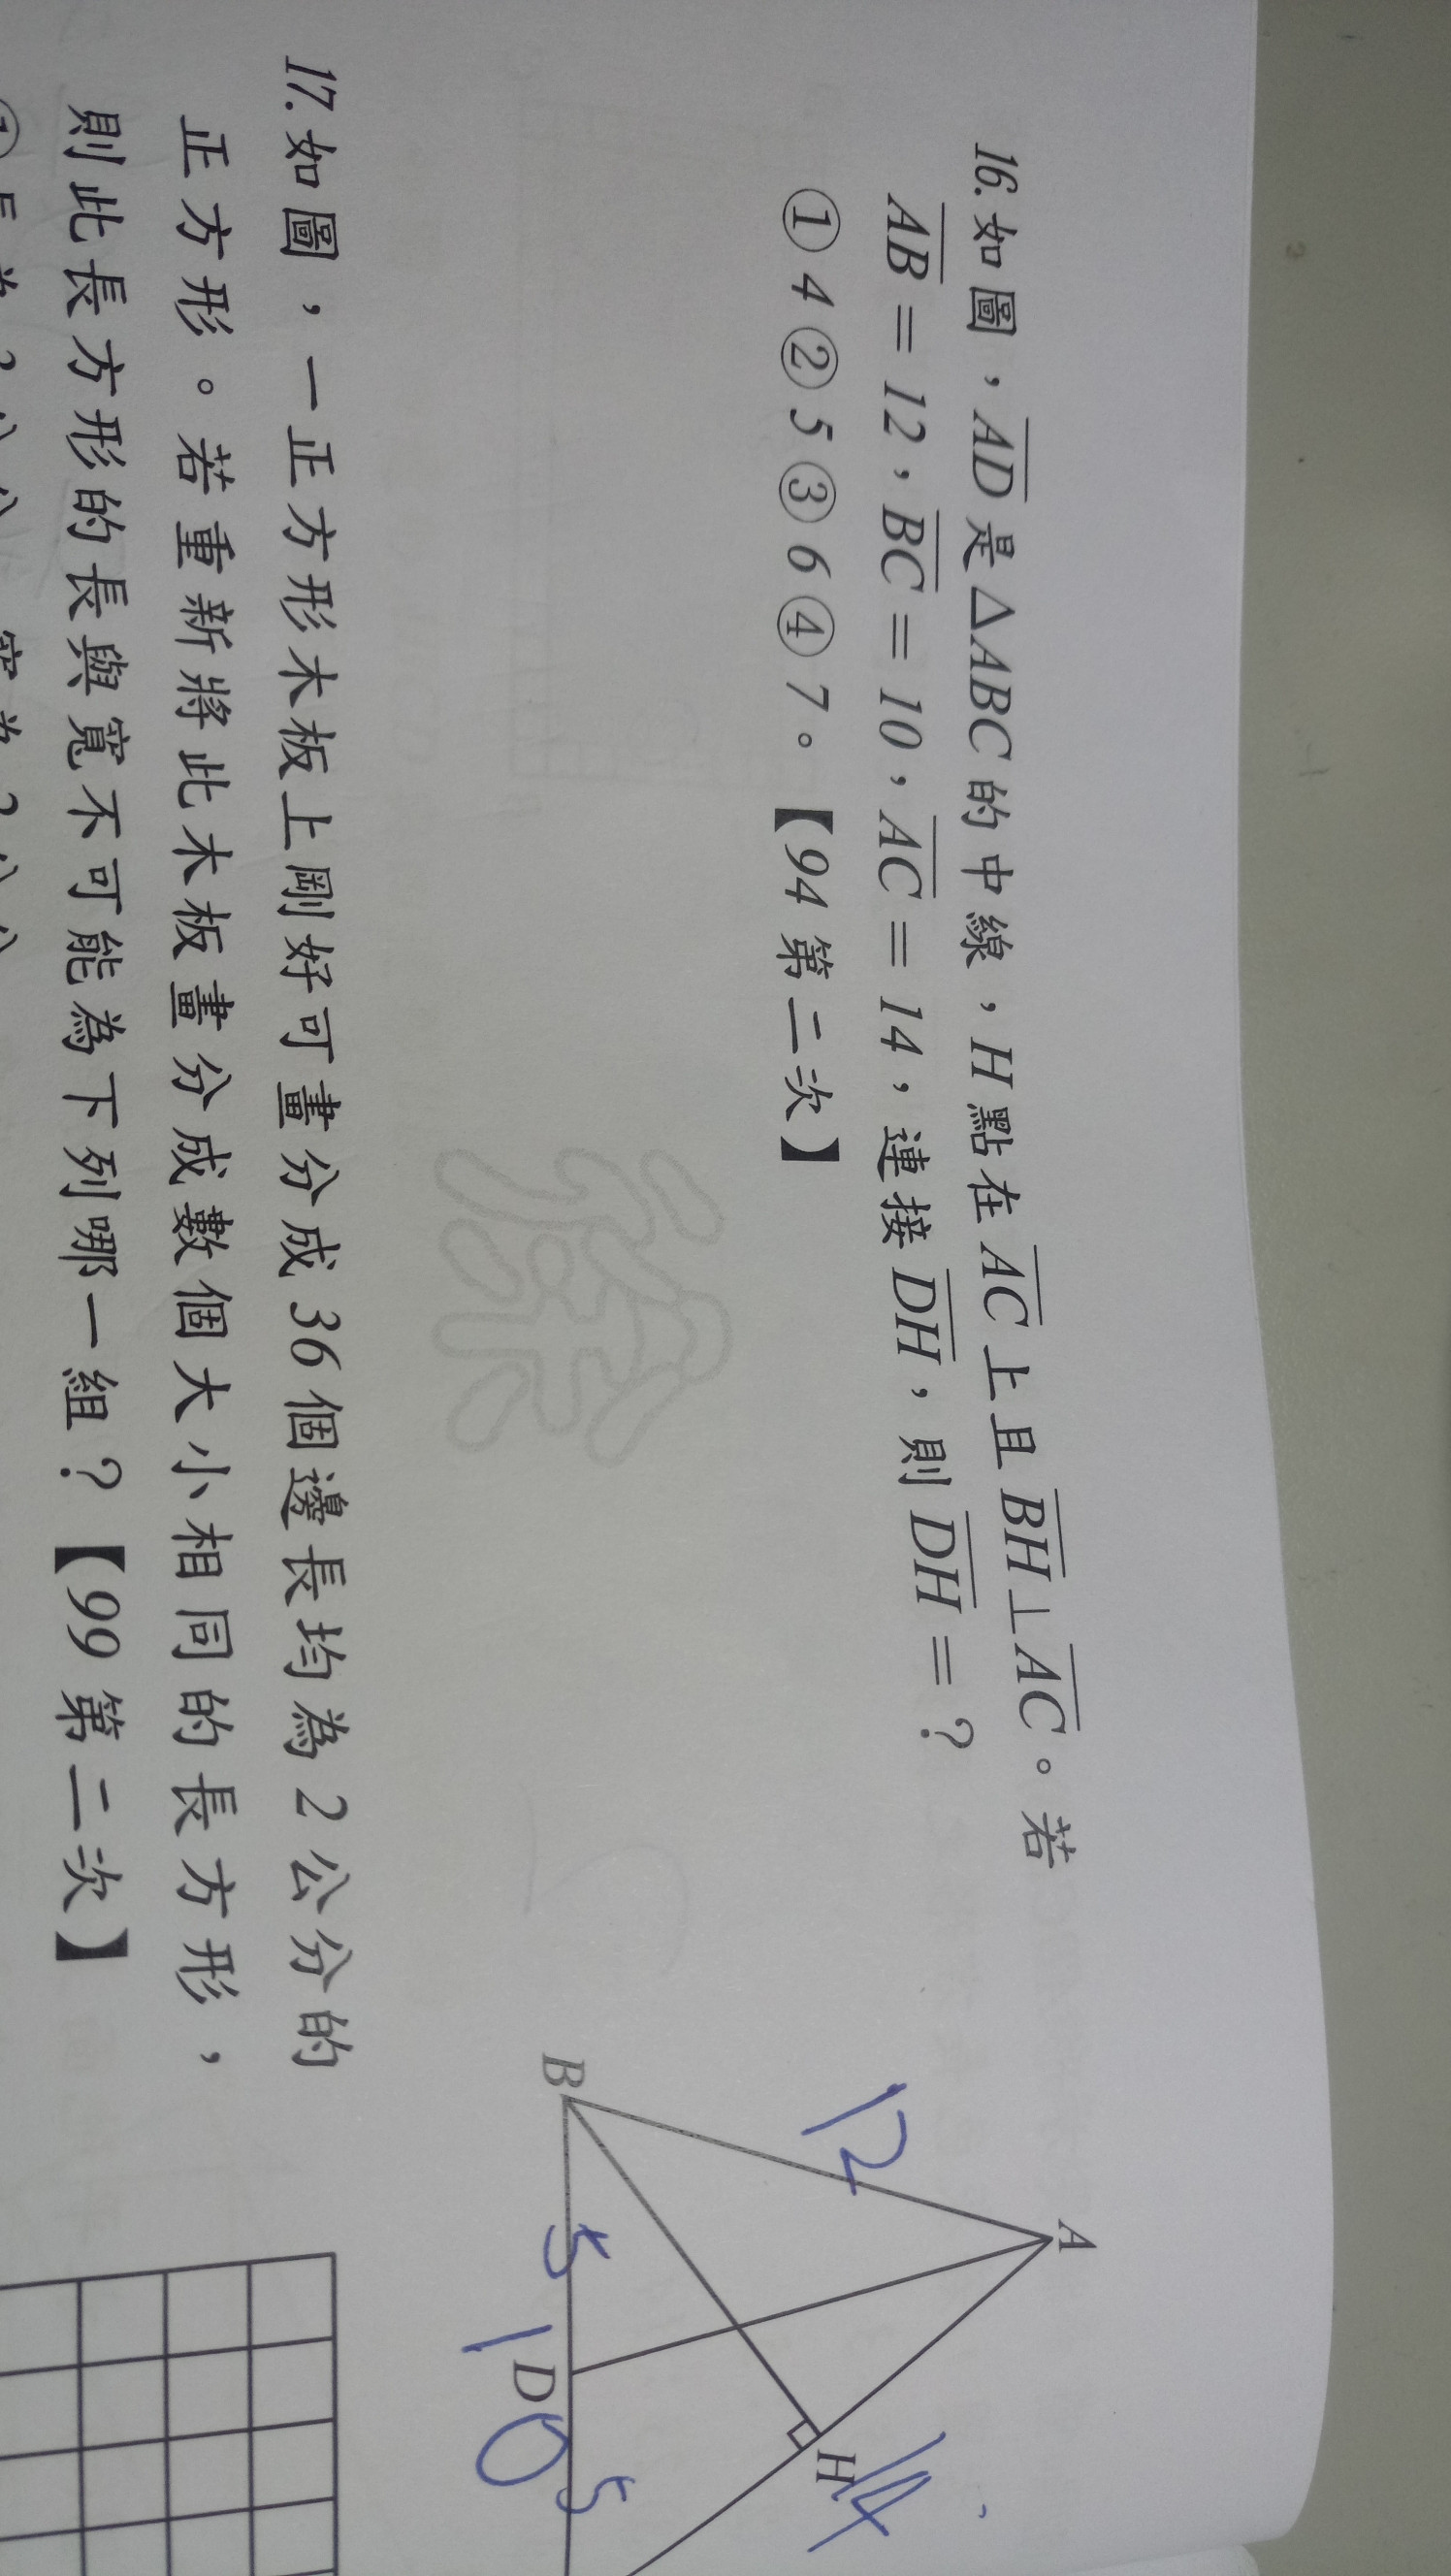 16.如圖，AD是△ABC的中線，H點在AC上且BH⊥AC。若
AB=12，BC=10，AC=14，連接DH，則DH=？
①4②5③6④7。【94第二次】
A
12
H
14
B
5
D
5
10
17.如圖，一正方形木板上剛好可畫分成36個邊長均為2公分的
正方形。若重新將此木板畫分成數個大小相同的長方形，
則此長方形的長與寬不可能為下列哪一組？【99第二次】